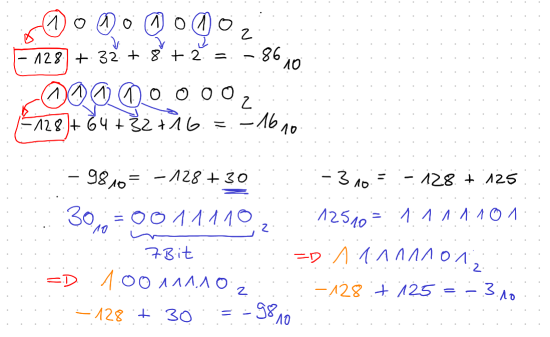 1 0 1 0 1 0 1 0 2
-128 + 32 + 8 + 2 = -86 10
1 1 1 1 0 0 0 0 2
-128 + 64 + 32 + 16 = -16 10
-98 10 = -128 + 30
30 10 = 0011110 2
7Bit
=D 10011110 2
-128 + 30 = -98 10
-3 10 = -128 + 125
125 10 = 1111101
=D 11111101 2
-128 + 125 = -3 10